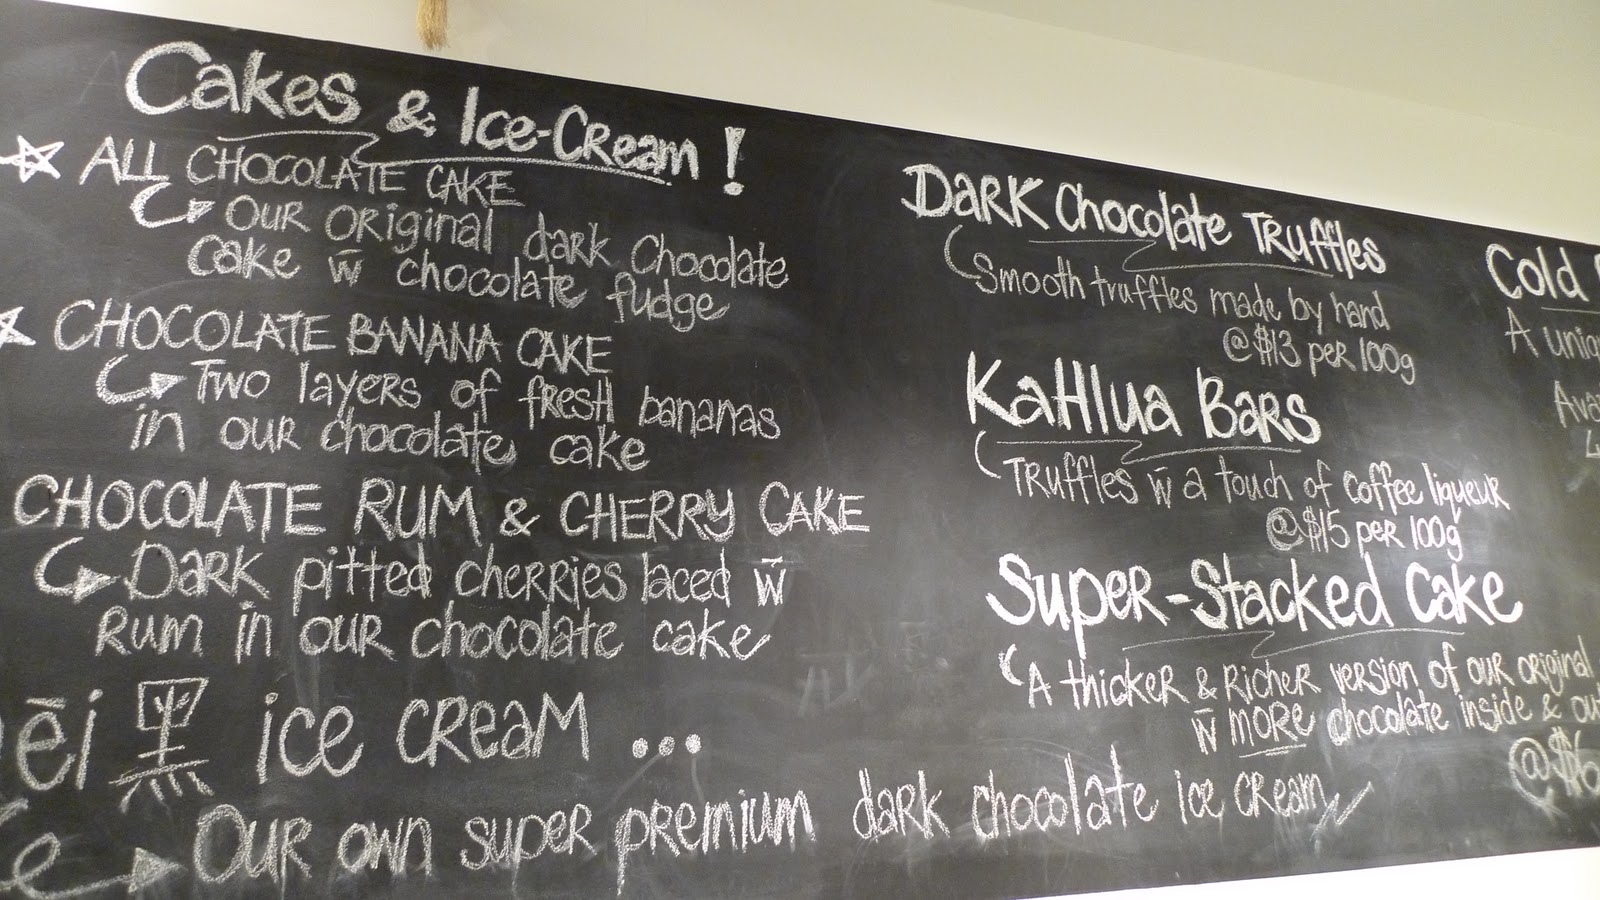 Cakes & Ice-Cream!
ALL CHOCOLATE CAKE
OUR ORIGINAL dark Chocolate
cake w̄ chocolate fudge
CHOCOLATE BANANA CAKE
Two layers of fresh bananas
in our chocolate cake
CHOCOLATE RUM & CHERRY CAKE
Dark pitted cherries laced w̄
Rum in our chocolate cake
ēi 黑 ice cream ...
Our own super premium dark chocolate ice cream
Dark Chocolate Truffles
Smooth truffles made by hand
@ $13 per 100g
Kahlua Bars
Truffles w̄ a touch of coffee liqueur
@ $15 per 100g
Super-Stacked Cake
A thicker & richer version of our original
w̄ more chocolate inside & out
@ $6
Cold
A uniq
Ava